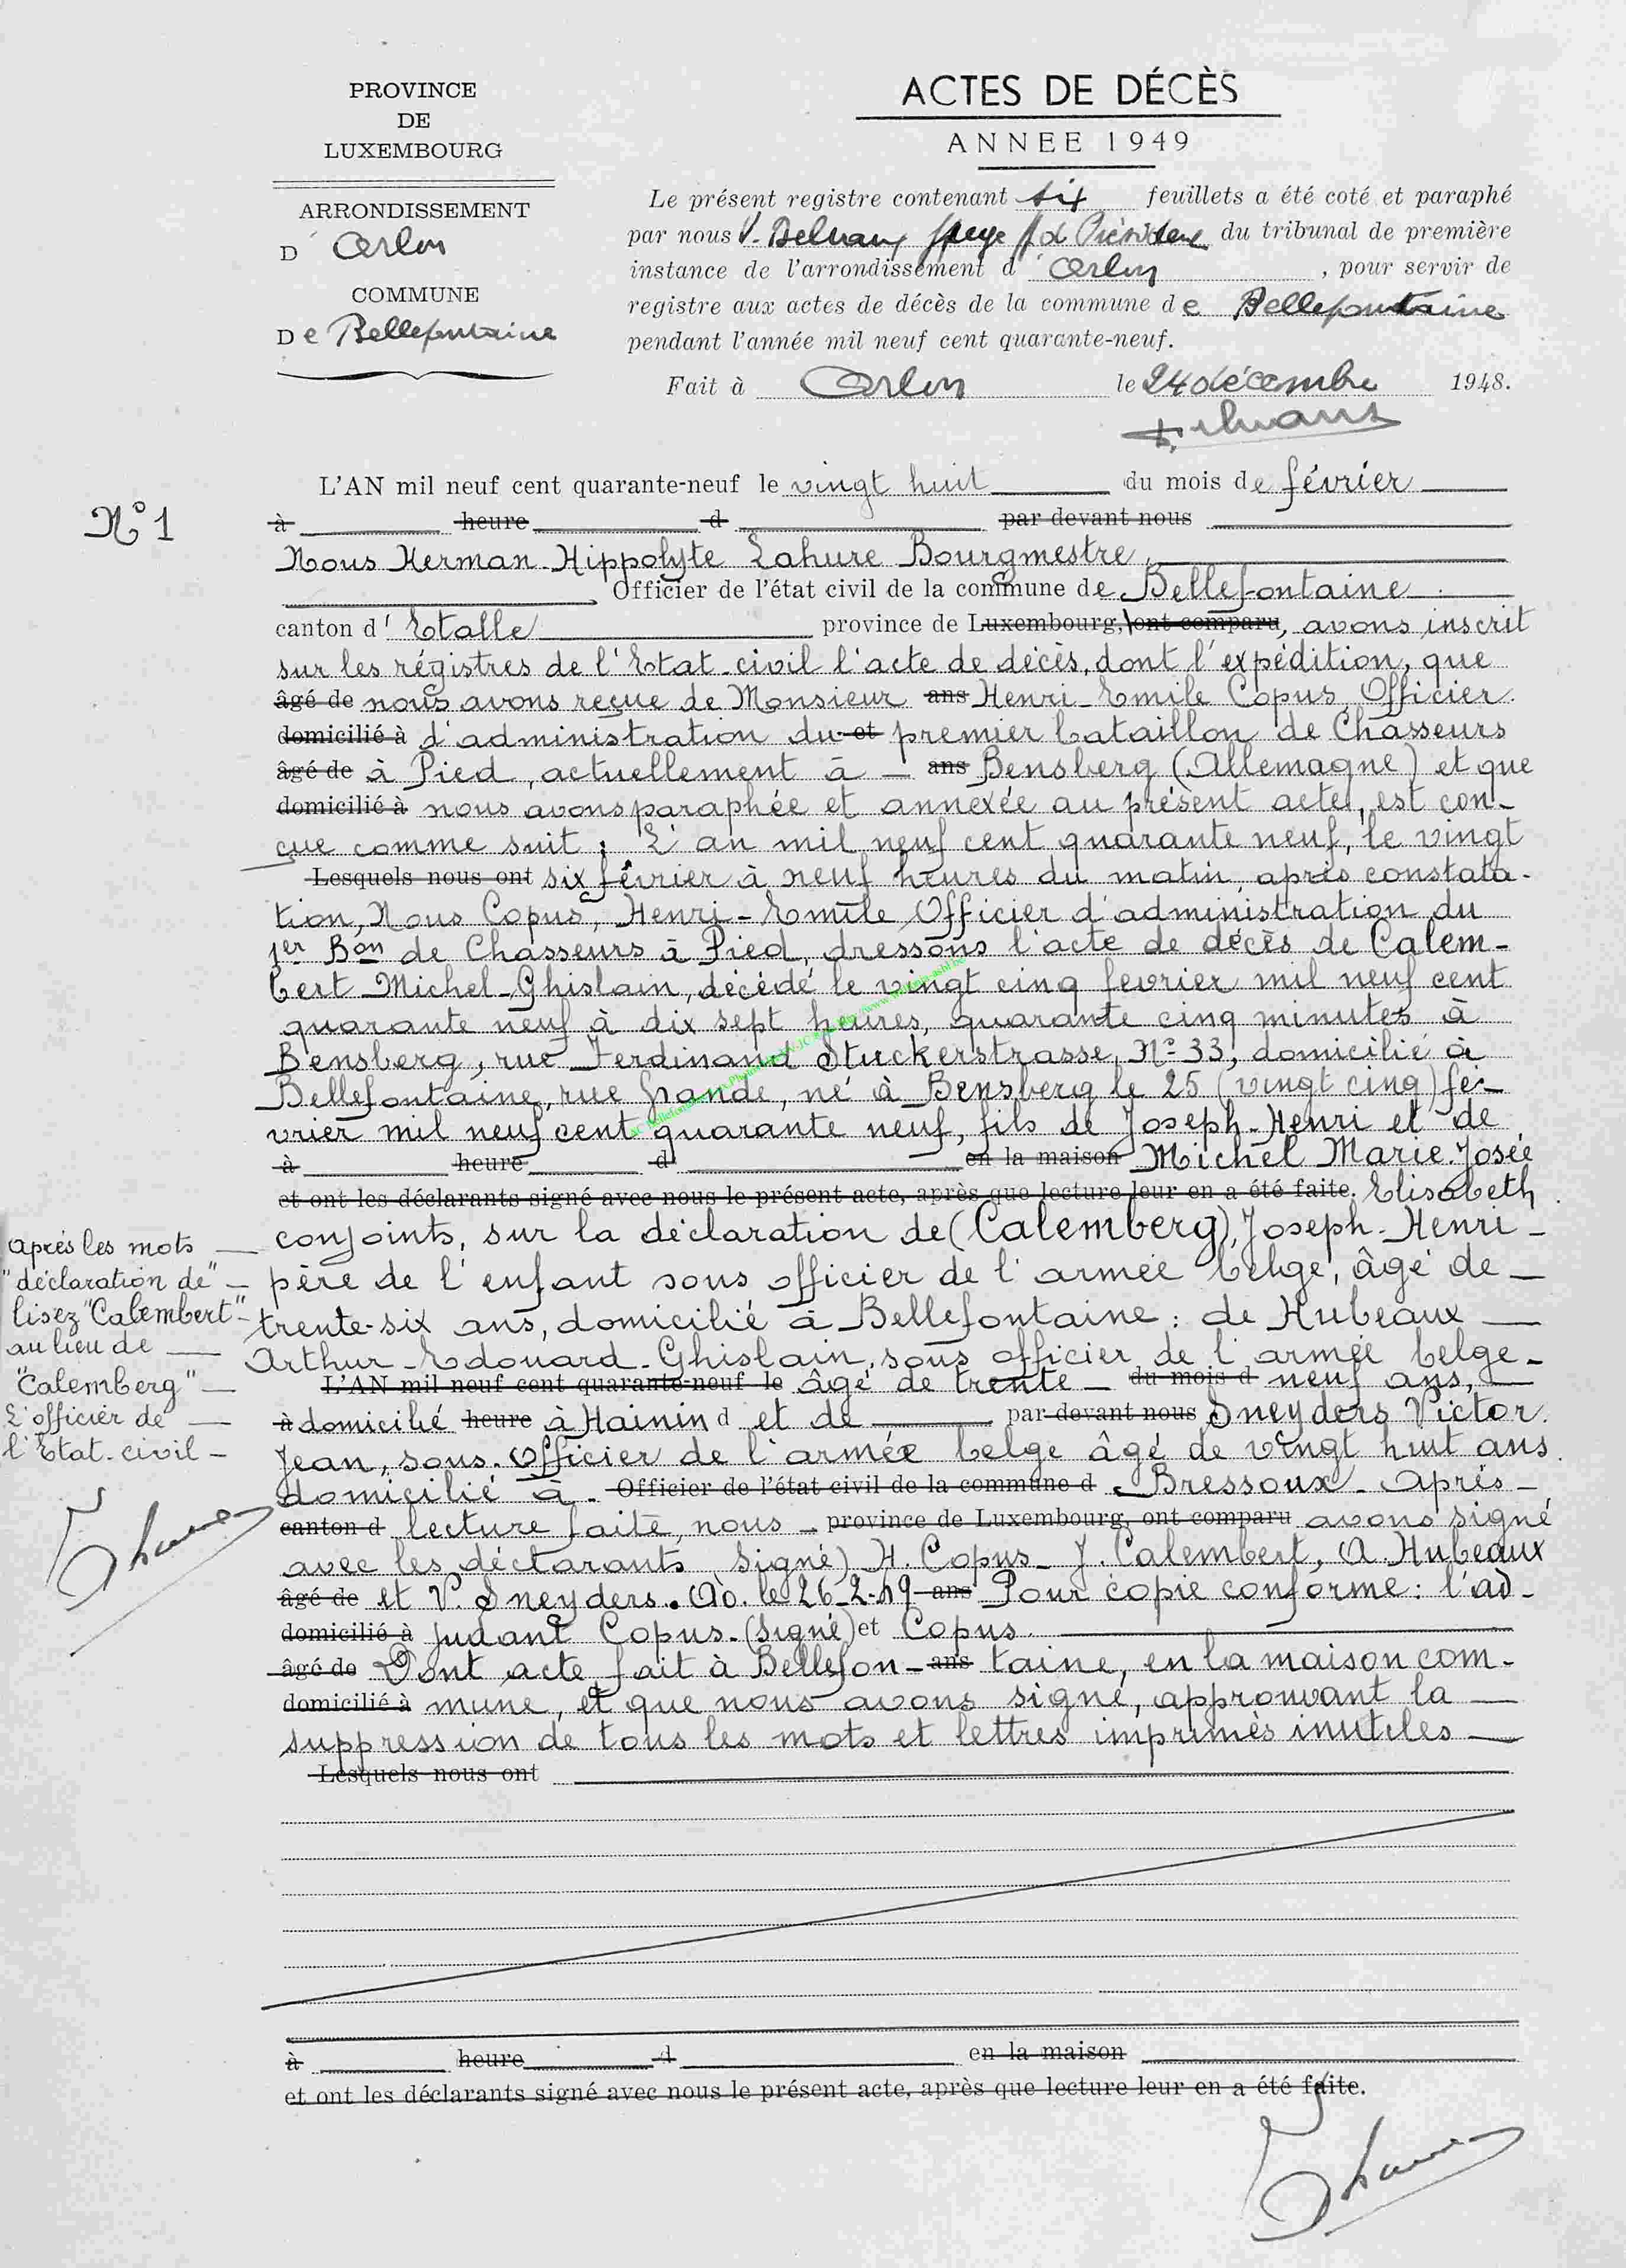 PROVINCE
DE
LUXEMBOURG
ARRONDISSEMENT
D' Arlon
COMMUNE
De Bellefontaine
ACTES DE DÉCÈS
ANNEE 1949
Le présent registre contenant six feuillets a été coté et paraphé
par nous du tribunal de première
instance de l'arrondissement d' Arlon, pour servir de
registre aux actes de décès de la commune de Bellefontaine
pendant l'année mil neuf cent quarante-neuf.
Fait à Arlon le 24 décembre 1948.
N° 1
L'AN mil neuf cent quarante-neuf le vingt huit du mois de février
à heure d par devant nous
Nous Herman-Hippolyte Lahure Bourgmestre,
Officier de l'état civil de la commune de Bellefontaine
canton d' Etalle province de Luxembourg, ont comparu, avons inscrit
sur les régistres de l'Etat-civil l'acte de décès, dont l'expédition, que
âgé de nous avons reçue de Monsieur ans Henri-Emile Copus, Officier
domicilié à d'administration du et premier bataillon de Chasseurs
âgé de à Pied, actuellement à — ans Bensberg (Allemagne) et que
domicilié à nous avons paraphée et annexée au présent acte, est con-
çue comme suit : L'an mil neuf cent quarante neuf, le vingt
Lesquels nous ont six février à neuf heures du matin, après constata-
tion, Nous Copus, Henri-Emile, Officier d'administration du
1er Bon de Chasseurs à Pied, dressons l'acte de décès de Calem-
bert Michel-Ghislain, décédé le vingt cinq fevrier mil neuf cent
quarante neuf à dix sept heures, quarante cinq minutes à
Bensberg, rue Ferdinand Stuckerstrasse, N° 33, domicilié à
Bellefontaine, rue Grande, né à Bensberg le 25 (vingt cinq) fé-
vrier mil neuf cent quarante neuf, fils de Joseph-Henri et de
à heure d en la maison Michel Marie-Josée
et ont les déclarants signé avec nous le présent acte, après que lecture leur en a été faite. Elisabeth
conjoints, sur la déclaration de (Calemberg), Joseph-Henri -
père de l'enfant sous officier de l'armée belge, âgé de —
trente-six ans, domicilié à Bellefontaine : de Hubeaux —
Arthur-Edouard-Ghislain, sous officier de l'armée belge -
L'AN mil neuf cent quarante-neuf le âgé de trente — du mois d neuf ans, —
à domicilié heure à Hainin d et de — par devant nous Sneyders Victor
Jean, sous-Officier de l'armée belge âgé de vingt huit ans
domicilié à - Officier de l'état civil de la commune d Bressoux - Après -
canton d lecture faite, nous - province de Luxembourg, ont comparu avons signé
avec les déclarants (signé) H. Copus - J. Calembert, A. Hubeaux
âgé de et V. Sneyders. Ao. le 26-2-49 ans Pour copie conforme : l'ad-
domicilié à judant Copus - (Signé) et Copus
âgé de Dont acte fait à Bellefon- ans taine, en la maison com-
domicilié à mune, et que nous avons signé, approuvant la —
suppression de tous les mots et lettres imprimés inutiles —
Lesquels nous ont
après les mots —
"déclaration de" -
lisez "Calembert" -
au lieu de —
"Calemberg" —
L'officier de —
l'Etat-civil -
à heure d en la maison
et ont les déclarants signé avec nous le présent acte, après que lecture leur en a été faite.